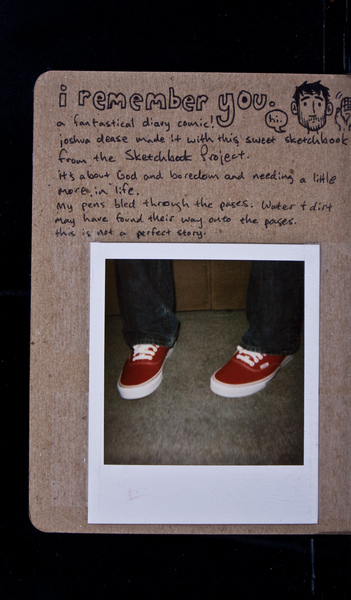 i remember you.
hi.
a fantastical diary comic!
joshua dease made it with this sweet sketchbook
from the Sketchbook Project.
it's about God and boredom and needing a little
more in life.
My pens bled through the pages. Water + dirt
may have found their way onto the pages.
this is not a perfect story.